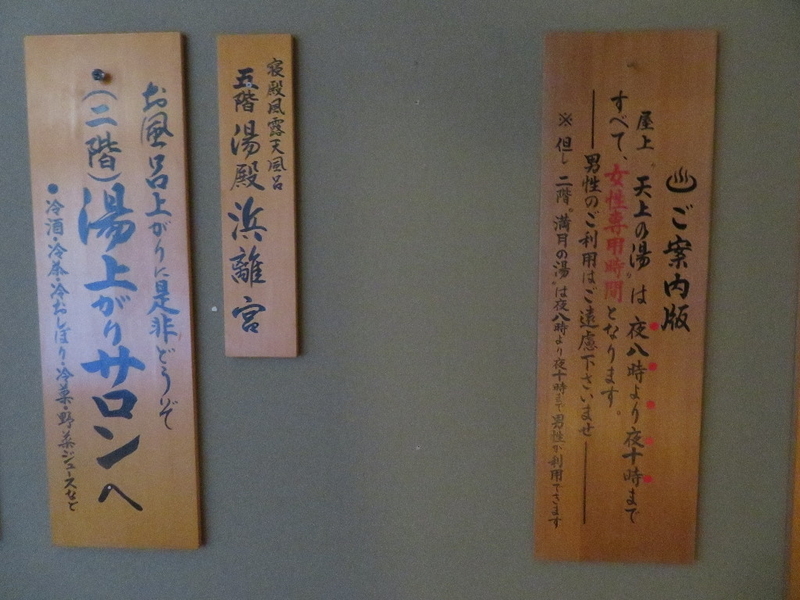 ♨ご案内版
屋上“天上の湯”は夜八時より夜十時まで
すべて、女性専用時間となります。
――男性のご利用はご遠慮下さいませ――
※但し二階“満月の湯”は夜八時より夜十時まで男性が利用できます
寝殿風露天風呂
五階 湯殿 浜離宮
お風呂上がりに是非どうぞ
(二階)湯上がりサロンへ
●冷酒・冷茶・冷おしぼり・冷菓・野菜ジュースなど